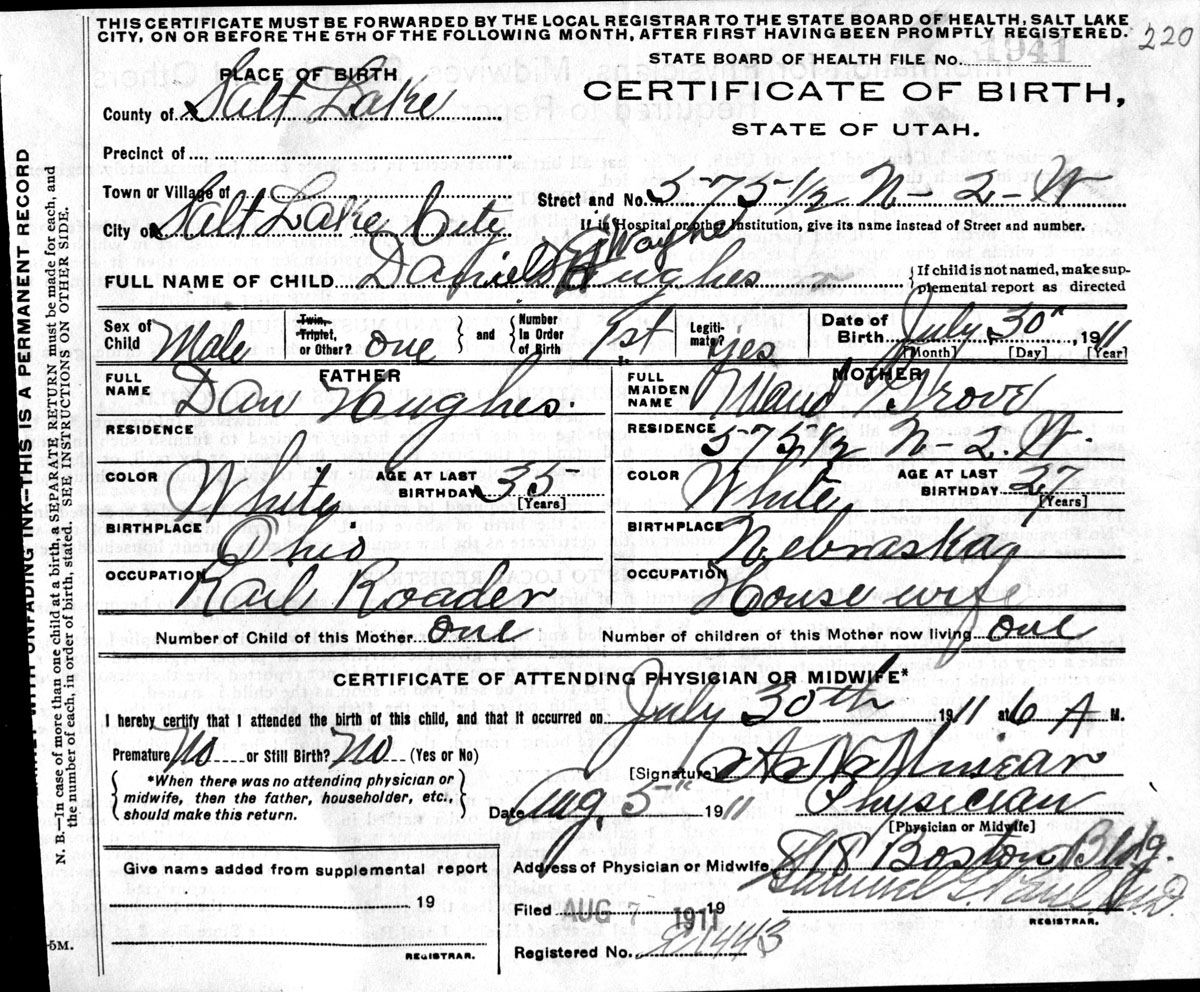 THIS CERTIFICATE MUST BE FORWARDED BY THE LOCAL REGISTRAR TO THE STATE BOARD OF HEALTH, SALT LAKE
CITY, ON OR BEFORE THE 5TH OF THE FOLLOWING MONTH, AFTER FIRST HAVING BEEN PROMPTLY REGISTERED.
220
STATE BOARD OF HEALTH FILE No. 1941
PLACE OF BIRTH
CERTIFICATE OF BIRTH,
STATE OF UTAH.
County of Salt Lake
Precinct of
Town or Village of
Street and No. 575 1/2 N - 2 - W
City of Salt Lake City
If in Hospital or other Institution, give its name instead of Street and number.
Wayne
FULL NAME OF CHILD Daniel Hughes
If child is not named, make sup-
plemental report as directed
Sex of Child Male
Twin, Triplet, or Other? one
and Number In Order of Birth 1st
Legiti-mate? Yes
Date of Birth July 30", 1911
[Month] [Day] [Year]
FATHER
MOTHER
FULL NAME Dan Hughes.
FULL MAIDEN NAME Maud Grove
RESIDENCE
RESIDENCE 575 1/2 N - 2. W.
COLOR White
AGE AT LAST BIRTHDAY 35 [Years]
COLOR White
AGE AT LAST BIRTHDAY 27 [Years]
BIRTHPLACE Ohio
BIRTHPLACE Nebraska
OCCUPATION Rail Roader
OCCUPATION House wife
Number of Child of this Mother one
Number of children of this Mother now living one
CERTIFICATE OF ATTENDING PHYSICIAN OR MIDWIFE*
I hereby certify that I attended the birth of this child, and that it occurred on July 30th 1911 at 6 A M.
Premature No or Still Birth? No (Yes or No)
[Signature]
*When there was no attending physician or
midwife, then the father, householder, etc.,
should make this return.
Date Aug, 5" 1911 Physician
[Physician or Midwife]
Address of Physician or Midwife 818 Boston Bldg.
Give name added from supplemental report
19
REGISTRAR.
Filed AUG 7 1911 19
REGISTRAR.
Registered No.
5M.
WITH UNFADING INK—THIS IS A PERMANENT RECORD
N. B.—In case of more than one child at a birth, a SEPARATE RETURN must be made for each, and
the number of each, in order of birth, stated. (SEE INSTRUCTIONS ON OTHER SIDE.